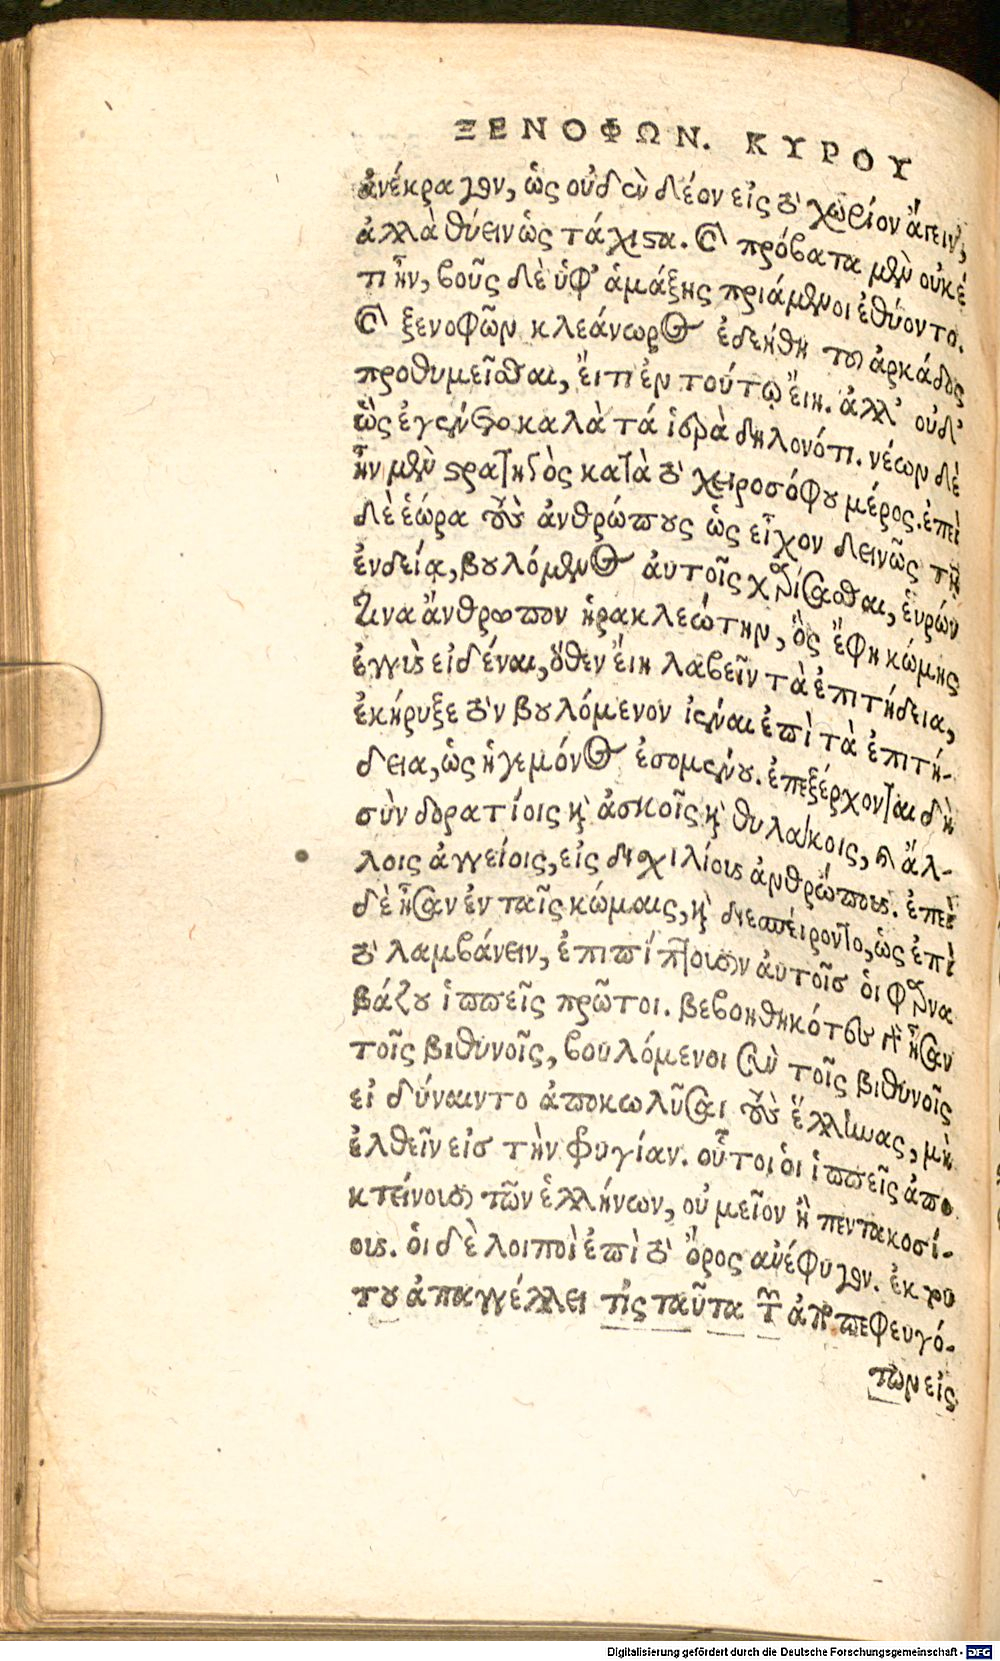 ΞΕΝΟΦΩΝ. ΚΥΡΟΥ
ἀνέκραγον, ὡς οὐδὲν δέον εἰς τὸ χωρίον ἄγειν,
ἀλλὰ θύειν ὡς τάχιστα. καὶ πρόβατα μὲν οὐκέ
τι ἦν, βοῦς δὲ ὑφ' ἁμάξης πριάμενοι ἐθύοντο.
καὶ ξενοφῶν κλεάνωρος ἐδεήθη τοῦ ἀρκάδος
προθυμεῖσθαι, ἔιτι ἐν τούτῳ ἔιη. ἀλλ' οὐδ'
ὣς ἐγένετο καλὰ τά ἱερὰ δηλονότι. νέων δὲ
ἦν μὲν στρατηγὸς κατὰ τὸ χειροσόφου μέρος. ἐπεὶ
δὲ ἑώρα τοὺς ἀνθρώπους ὡς εἶχον δεινῶς τῇ
ἐνδείᾳ, βουλόμενος αὐτοῖς χαρίσασθαι, ἑυρών
τινα ἄνθρωπον ἡρακλεώτην, ὃς ἔφη κώμης
ἐγγὺς εἰδέναι, ὅθεν ἔιη λαβεῖν τὰ ἐπιτήδεια,
ἐκήρυξε τὸν βουλόμενον ἰέναι ἐπὶ τὰ ἐπιτή-
δεια, ὡς ἡγεμόνος ἐσομένου. ἐπεξέρχονται δὴ
σὺν δορατίοις καὶ ἀσκοῖς καὶ θυλάκοις, καὶ ἄλ-
λοις ἀγγείοις, εἰς δισχιλίους ἀνθρώπους. ἐπεὶ
δὲ ἦσαν ἐν ταῖς κώμαις, καὶ διεσπείροντο, ὡς ἐπὶ
τὸ λαμβάνειν, ἐπιπίπτουσιν αὐτοῖσ ὁι φαρνα
βάζου ἱππεῖς πρῶτοι. βεβοηθηκότες γὰρ ἦσαν
τοῖς βιθυνοῖς, βουλόμενοι σὺν τοῖς βιθυνοῖς
εἰ δύναιντο ἀποκωλῦσαι τοὺς ἕλληνας, μὴ
ἐλθεῖν εἰσ τὴν φρυγίαν. οὗτοι ὁι ἱππεῖς ἀπο
κτείνουσι τῶν ἑλλήνων, οὐ μεῖον ἢ πεντακοσί-
ους. ὁι δὲ λοιποὶ ἐπὶ τὸ ὄρος ἀνέφυγον. ἐκ τού
του ἀπαγγέλλει τὶς ταῦτα τῶν ἀποπεφευγό-
των εἰς
Digitalisierung gefördert durch die Deutsche Forschungsgemeinschaft - DFG